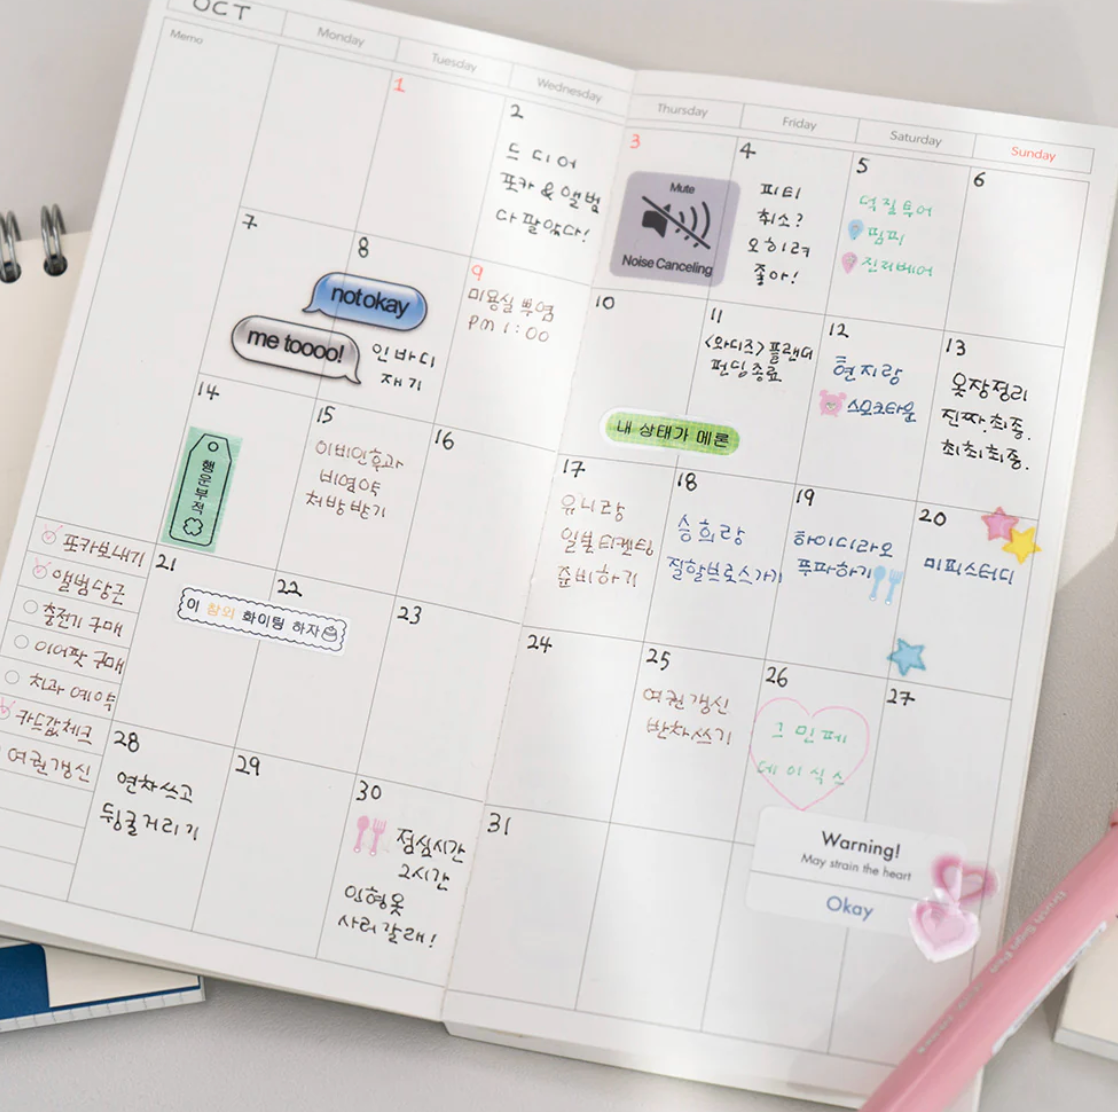 OCT
Memo
Monday
Tuesday
Wednesday
Thursday
Friday
Saturday
Sunday
1
2
드디어
포카 & 앨범
다 팔았다!
3
Mute
Noise Canceling
4
피티
취소?
오히려
좋아!
5
덕질투어
띰피
진저베어
6
7
8
not okay
me toooo!
인바디
재기
9
미용실 뿌염
PM 1:00
10
11
<와디즈> 플랜더
펀딩종료
내 상태가 메론
12
현지랑
스모크타운
13
옷장정리
진짜.최종.
최최최종.
14
행운부적
15
이비인후과
비염약
처방받기
16
17
유니랑
일본 티켓팅
준비하기
18
승희랑
질할브로스가기
19
하이디라오
푸파하기
20
미피스터디
21
이 참외 화이팅 하자
22
23
24
25
여권갱신
반차쓰기
26
그민페
데이식스
27
28
연차쓰고
뒹굴거리기
29
30
점심시간
2시간
인형옷
사러갈래!
31
Warning!
May strain the heart
Okay
포카보내기
앨범당근
충전기 구매
이어팟 구매
치과 예약
카드값체크
여권갱신